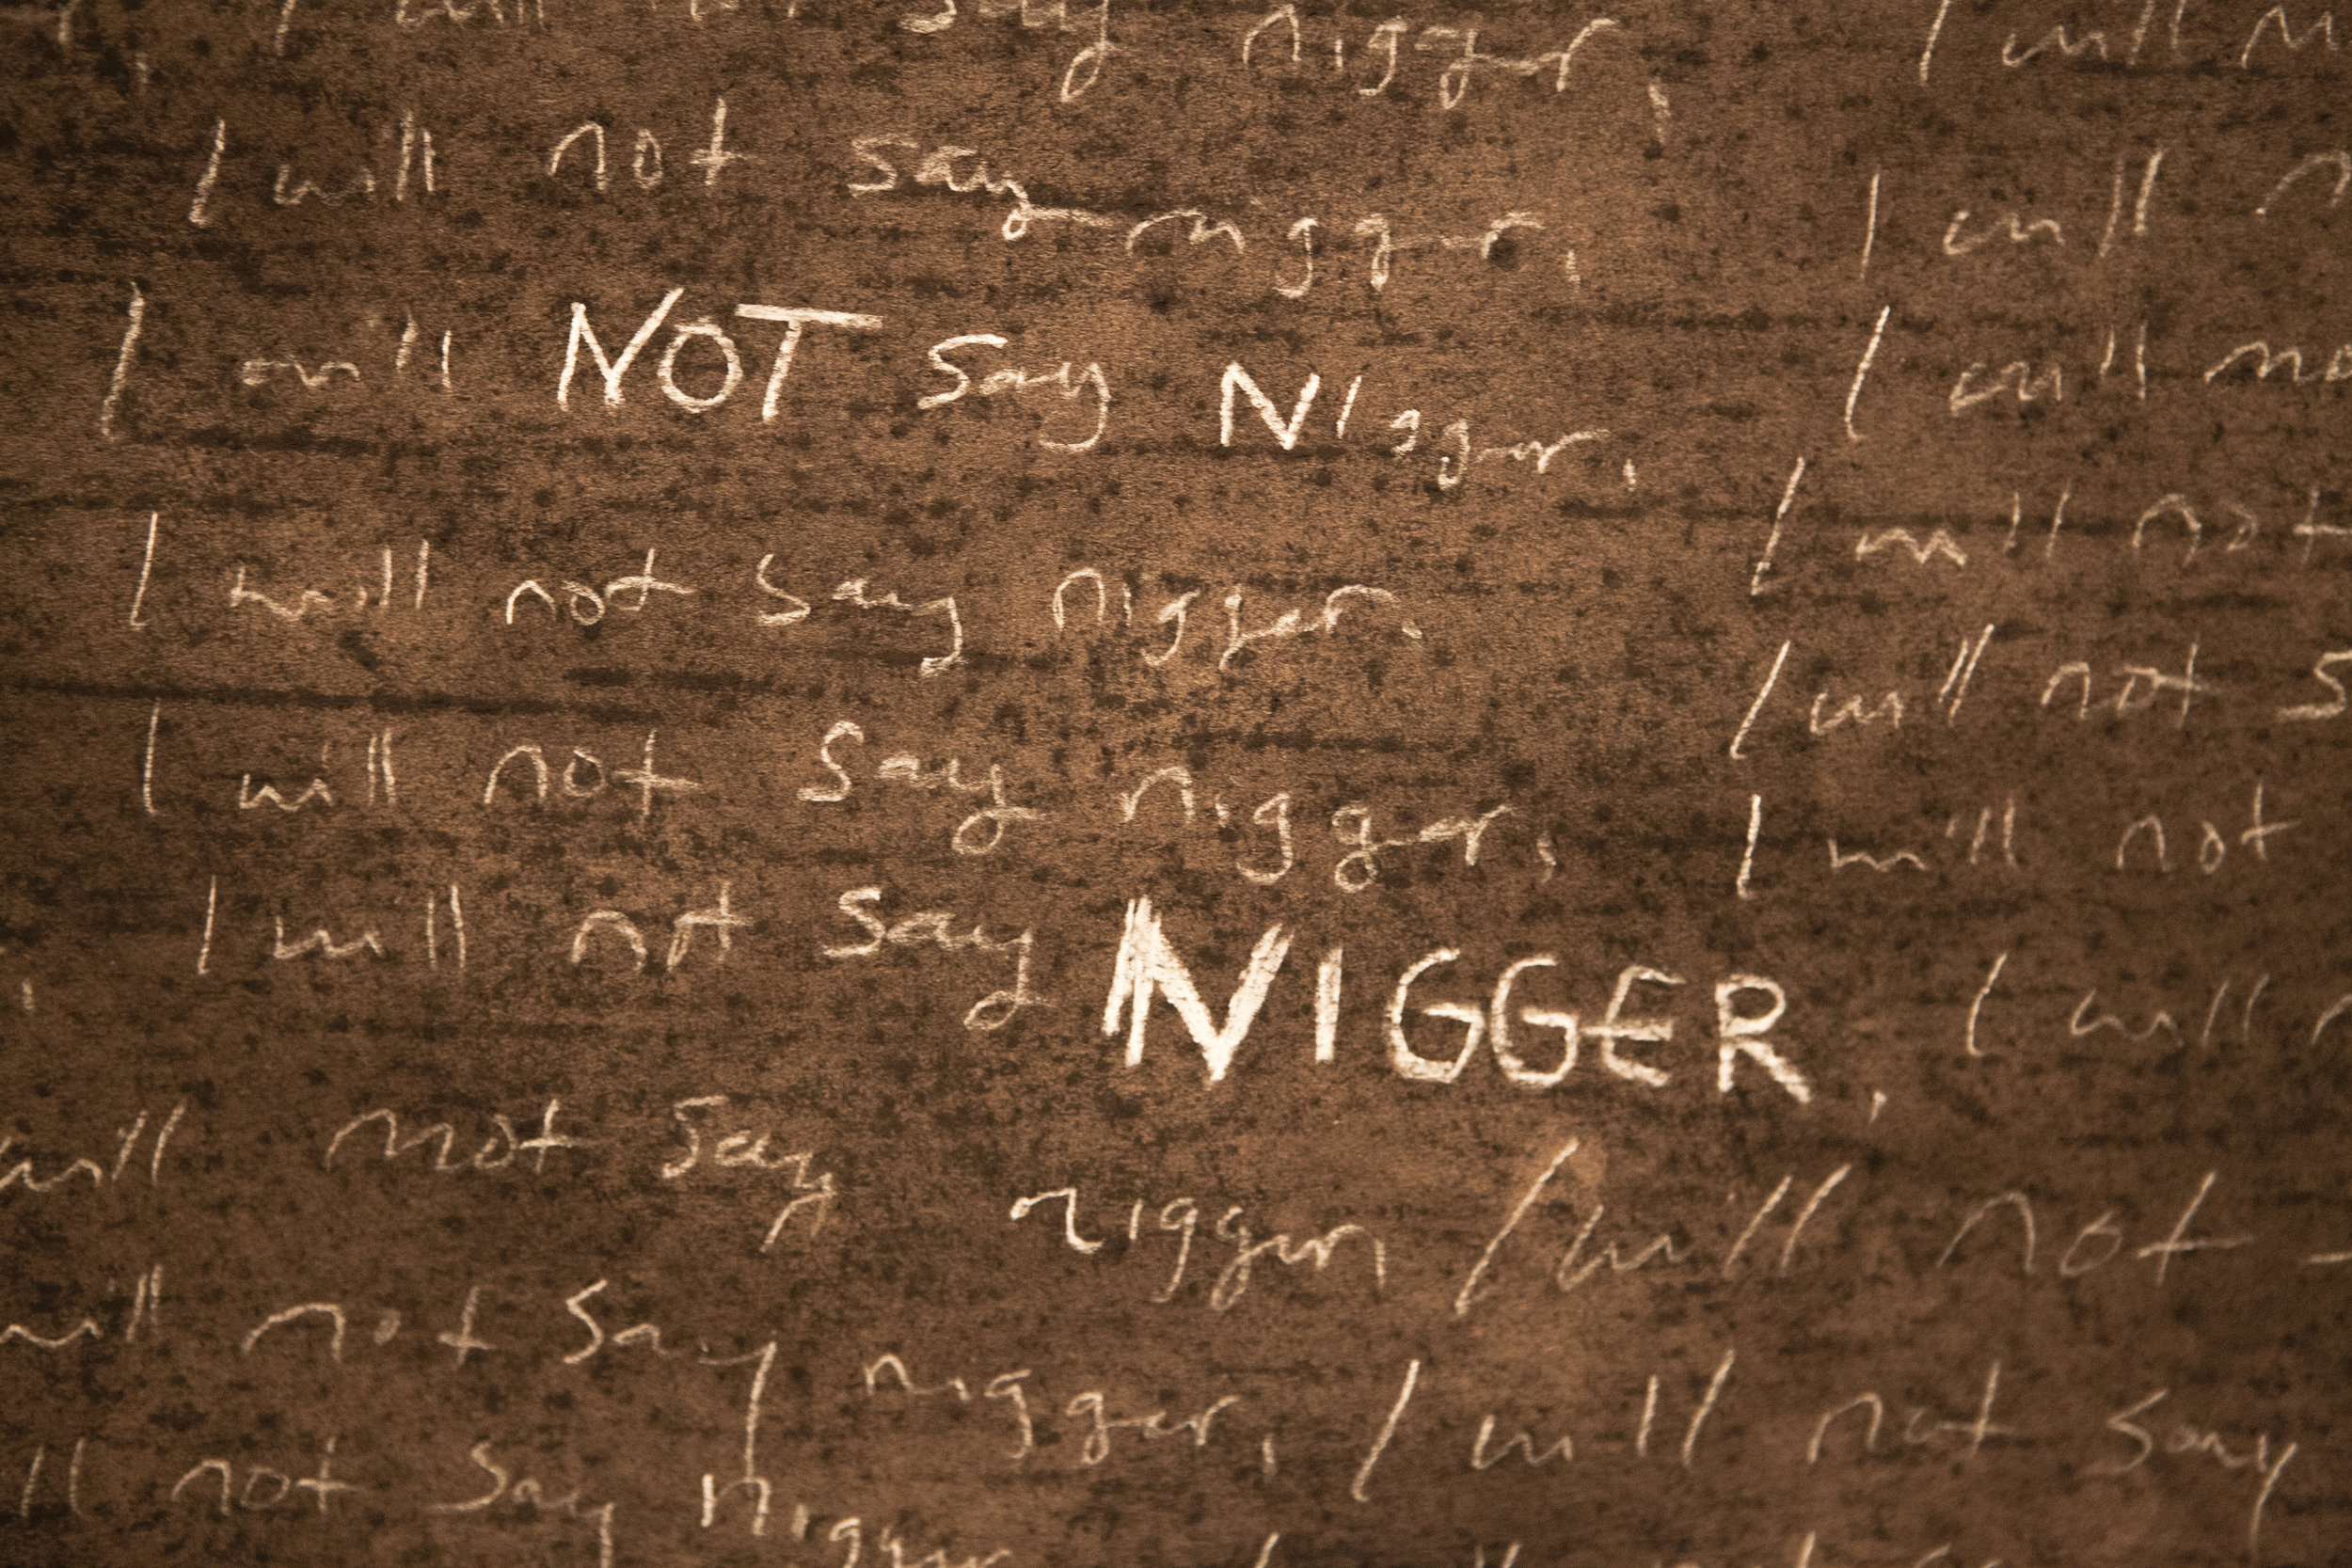 I will not say nigger,
I will n
I will not say nigger,
I will n
I will NOT say Nigger,
I will no
I will not say nigger.
I will not
I will not say nigger,
I will not s
I will not say NIGGER,
I will not
I will
will not say nigger I will not
will not say nigger, I will not say
ll not say nigger